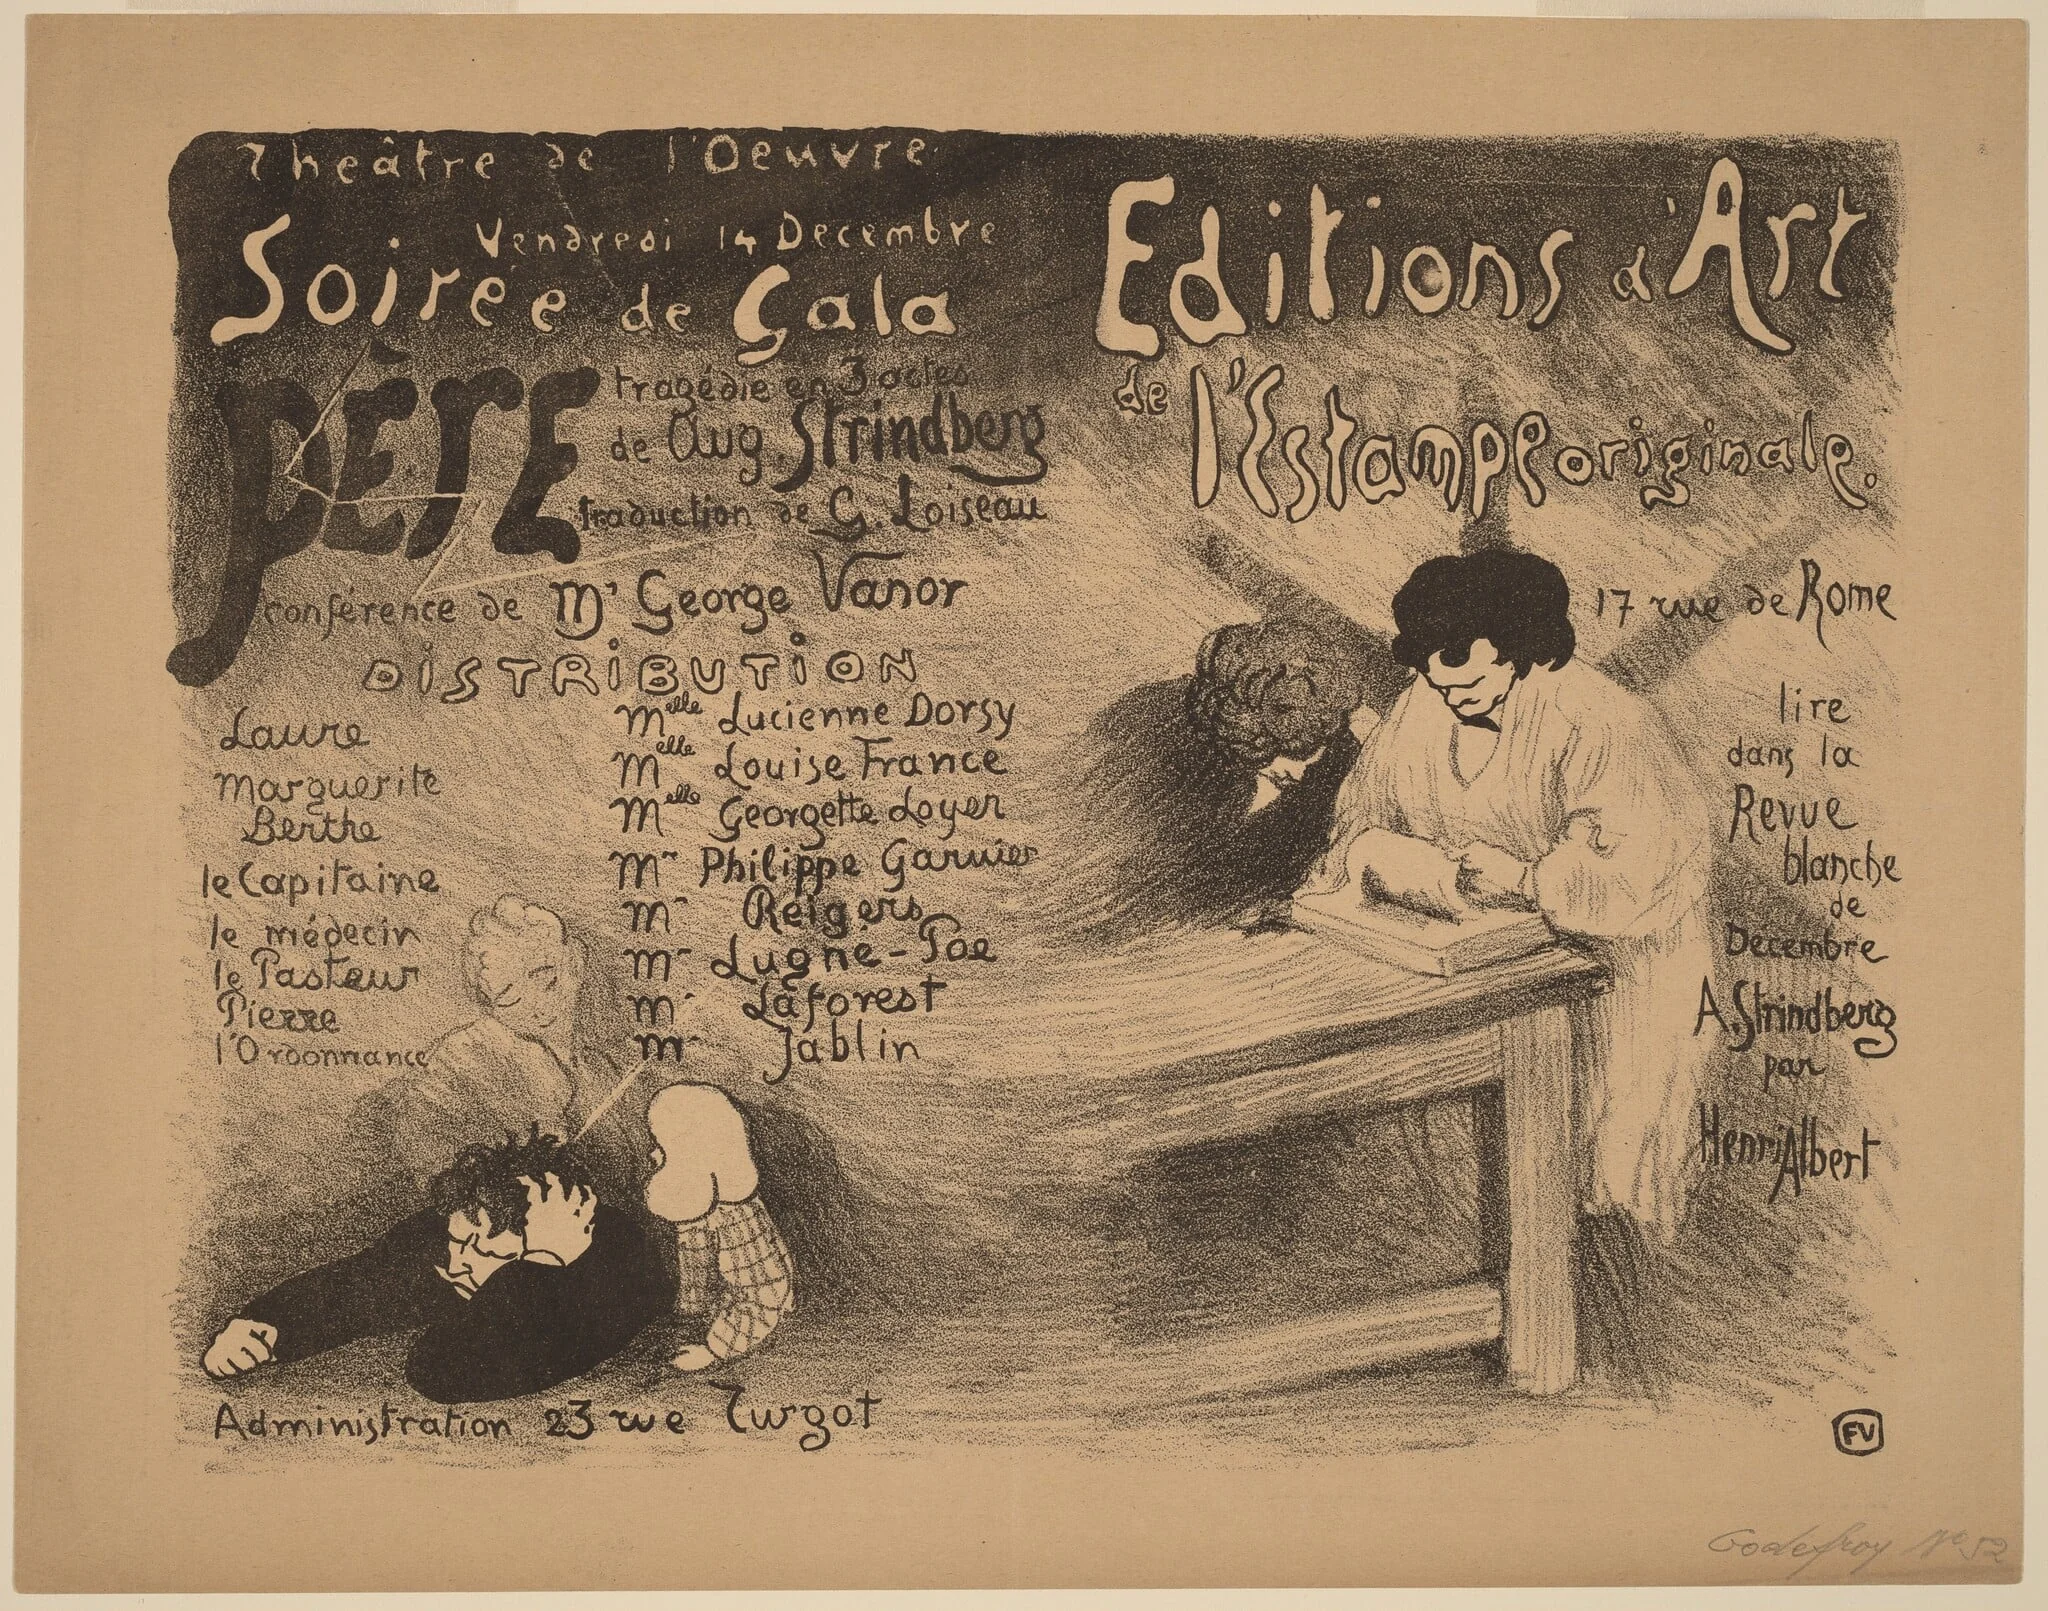 Theâtre de l'Oeuvre
Vendredi 14 Decembre
Soirée de Gala
PÈRE
tragédie en 3 actes
de Aug. Strindberg
traduction de G. Loiseau
conférence de Mr George Vanor
DISTRIBUTION
Laure Melle Lucienne Dorsy
Marguerite Melle Louise France
Berthe Melle Georgette Loyer
le Capitaine Mr Philippe Garnier
le médecin Mr Reigers
le Pasteur Mr Lugné-Poe
Pierre Mr Laforest
l'Ordonnance Mr Jablin
Administration 23 rue Turgot
Editions d'Art
de l'Estampe originale.
17 rue de Rome
lire
dans la
Revue
blanche
de
Décembre
A. Strindberg
par
Henri Albert
FV
Godefroy No 52